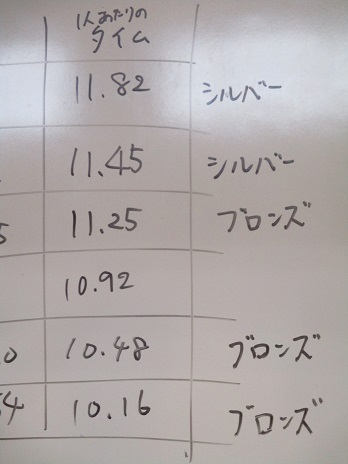 1人あたりの
タイム
11.82 シルバー
11.45 シルバー
5 11.25 ブロンズ
10.92
0 10.48 ブロンズ
4 10.16 ブロンズ